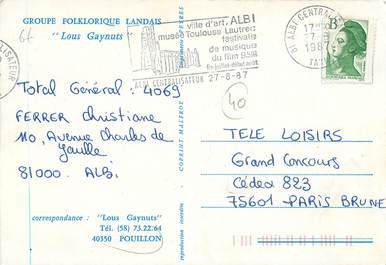 GROUPE FOLKLORIQUE LANDAIS
"Lous Gaynuts"
ville d'art, ALBI
musée Toulouse Lautrec
festivals
de musique
du film 9,5MM
fin juillet-début août
ALBI CENTRALISATEUR 27-8-87
81 ALBI CENTRAL
27-
198
TA
B
Total Général : 4069
FERRER Christiane
110, Avenue Charles de
Gaulle
81000 - ALBI.
40
COPELUT MALFROY
reproduction interdite
TELE LOISIRS
Grand Concours
Cédex 823
75601 - PARIS BRUNE
correspondance : "Lous Gaynuts"
Tél. (58) 73.22.64
40350 POUILLON